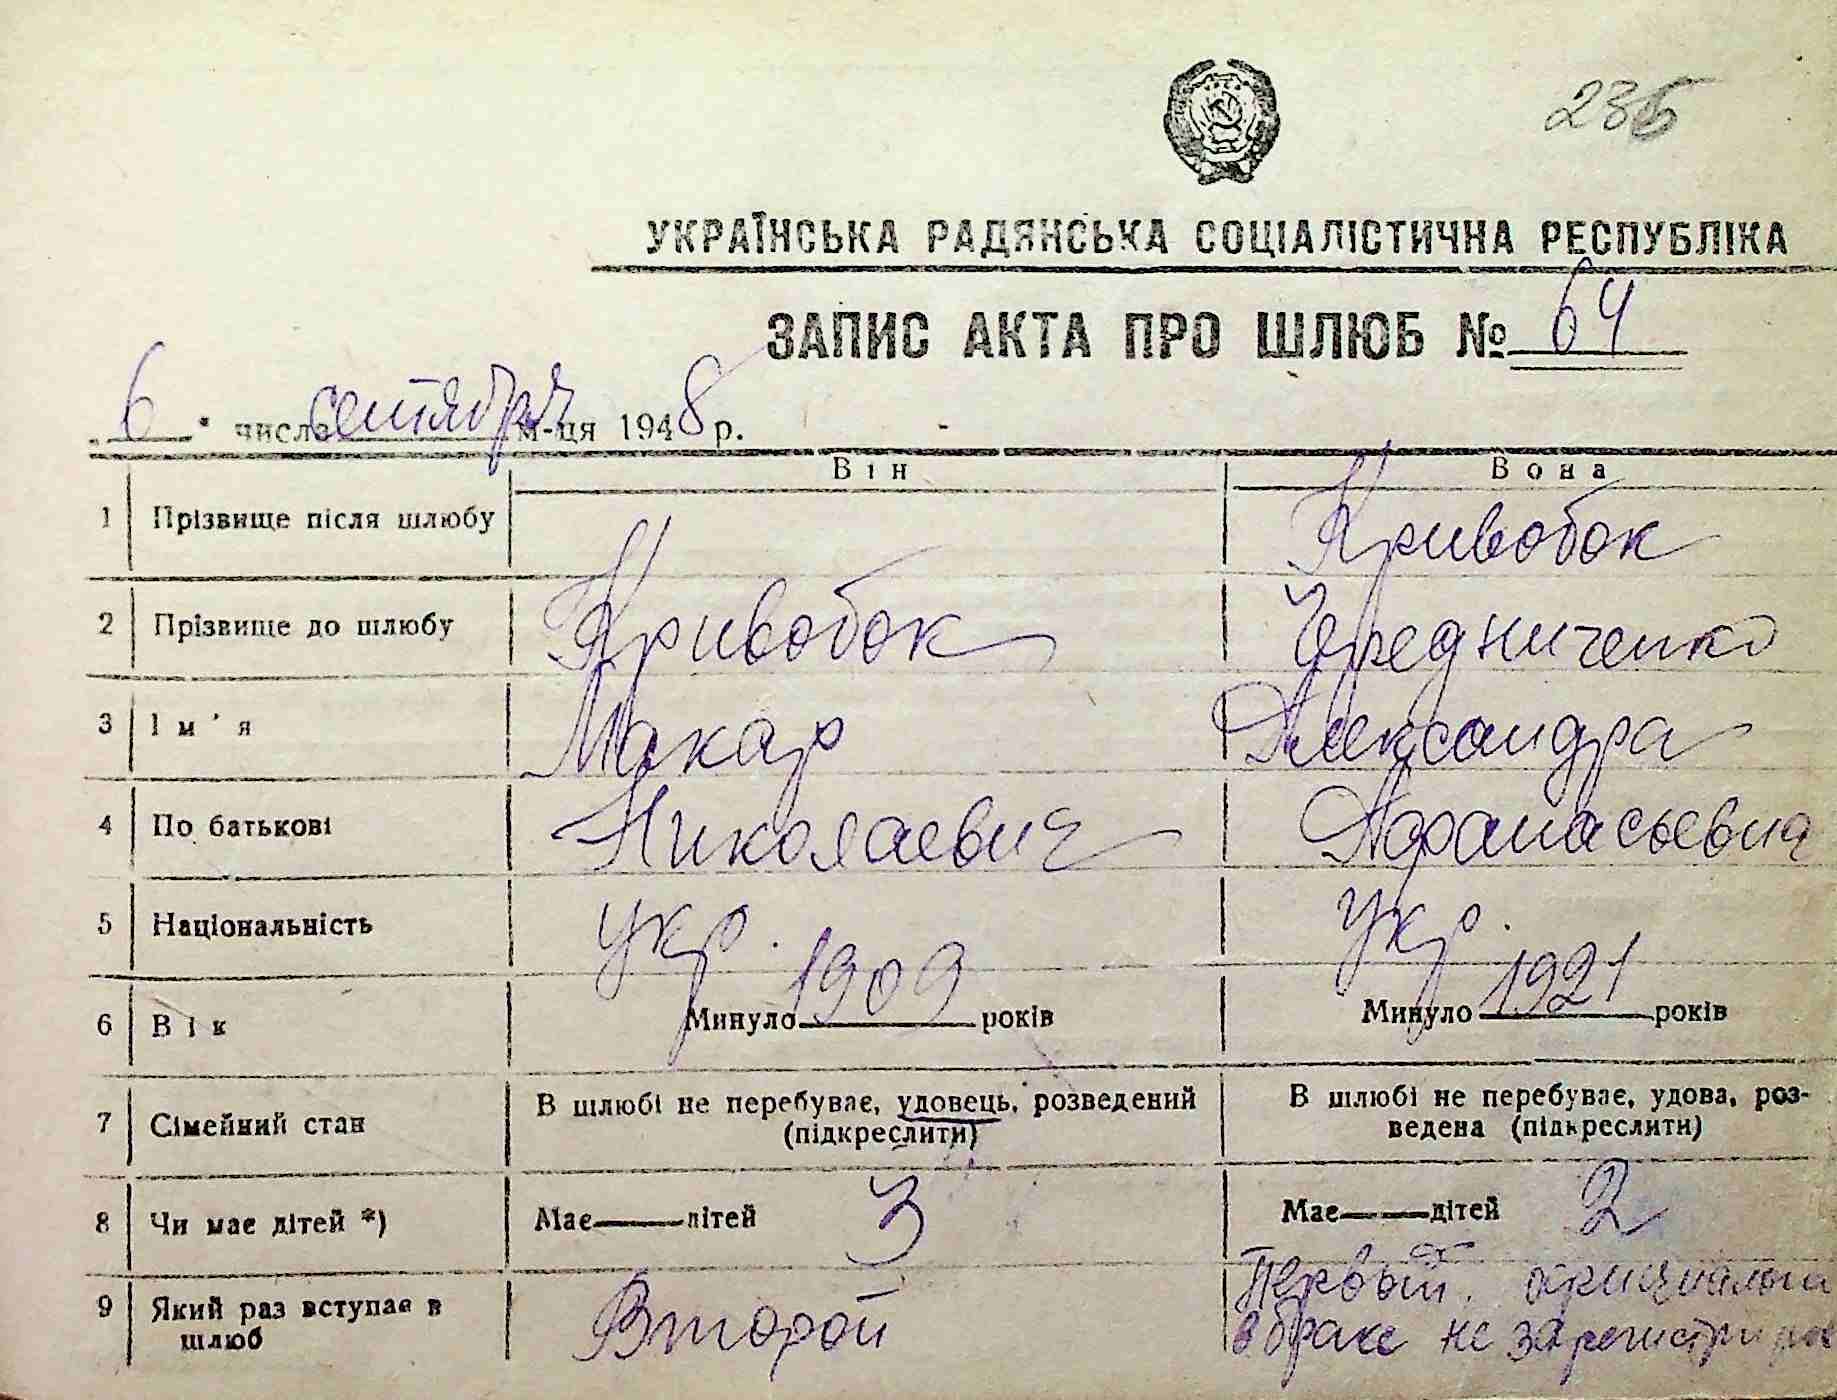 235
УКРАЇНСЬКА РАДЯНСЬКА СОЦІАЛІСТИЧНА РЕСПУБЛІКА
ЗАПИС АКТА ПРО ШЛЮБ № 64
„ 6 " числа сентября м-ця 1948 р.
Він Вона
1 Прізвище після шлюбу Кривобок
2 Прізвище до шлюбу Кривобок Чередниченко
3 Ім'я Макар Александра
4 По батькові Николаевич Афанасьевна
5 Національність укр. укр.
6 Вік Минуло 1909 років Минуло 1921 років
7 Сімейний стан В шлюбі не перебуває, удовець, розведений В шлюбі не перебуває, удова, роз-
(підкреслити) ведена (підкреслити)
8 Чи має дітей *) Має дітей 3 Має дітей 2
9 Який раз вступає в Второй Первый.
шлюб в браке не